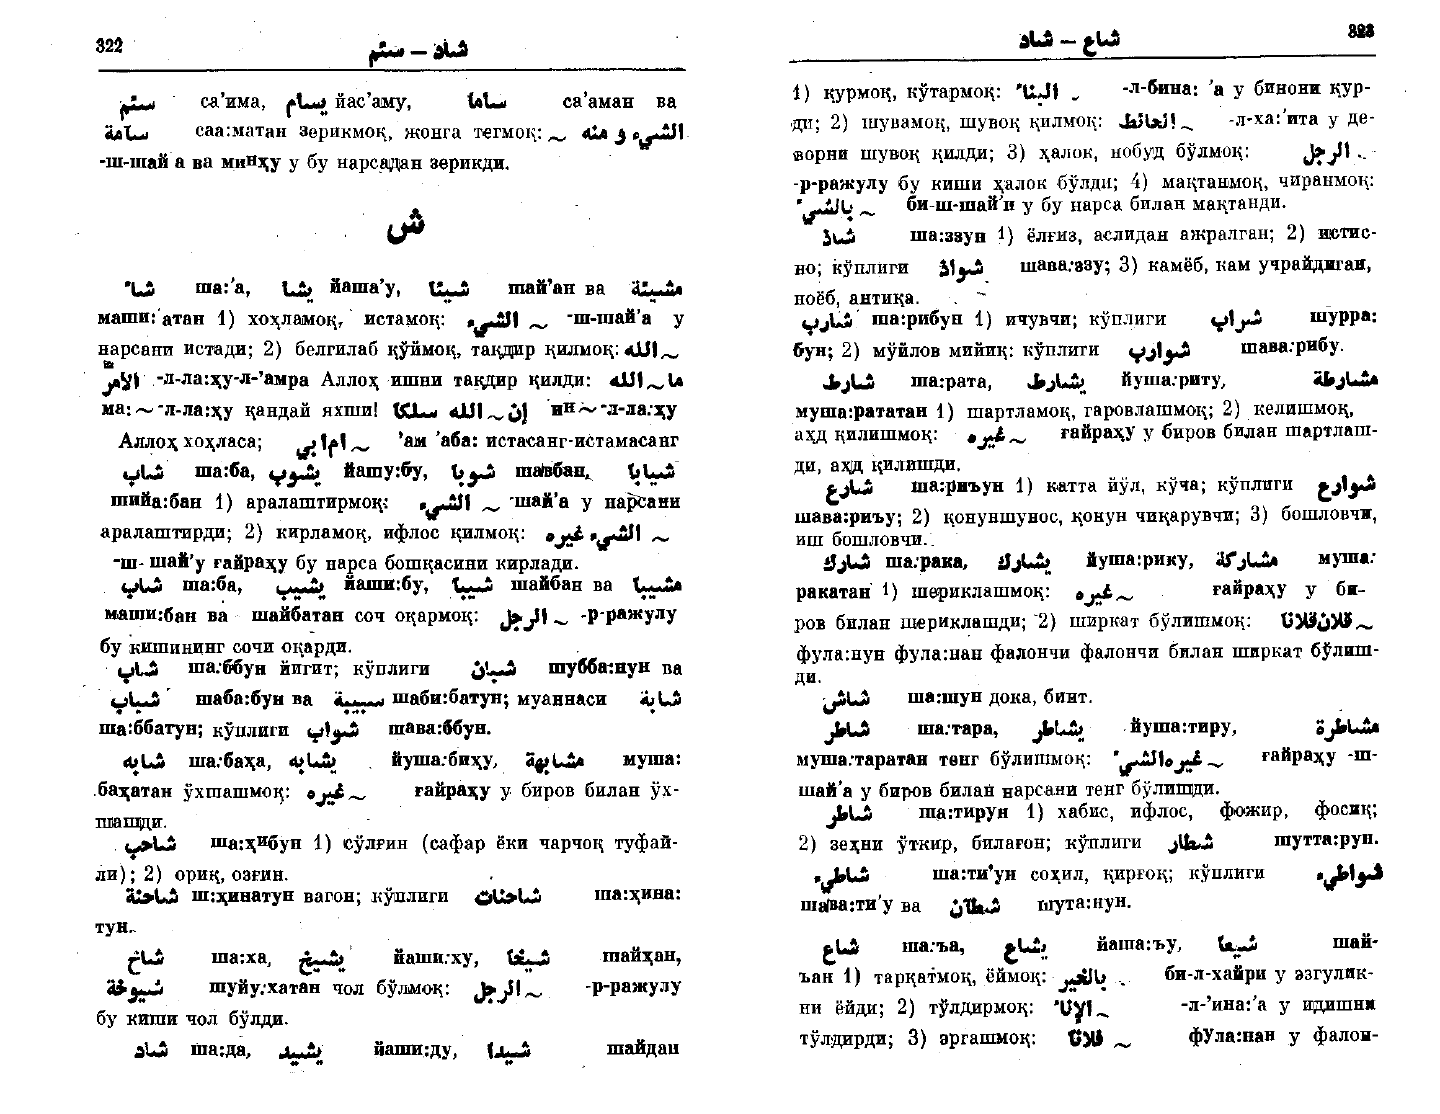 322
شاد — سئم
سئم са’има, يسام йас’аму, ساما са’аман ва
سامة саа:матан зерикмоқ, жонга тегмоқ: ~ الشيء و منه
-ш-шай а ва минҳу у бу нарсадан зерикди.
ش
شاء ша:’а, يشا йаша’у, شيئا шай’ан ва مشيئة
маши:’атан 1) хоҳламоқ, истамоқ: ~ الشيء -ш-шай’а у
нарсани истади; 2) белгилаб қўймоқ, тақдир қилмоқ: ~ الله
الامر -л-ла:ҳу-л-’амра Аллоҳ ишни тақдир қилди: ما ~ الله
ма: ~ -л-ла:ҳу қандай яхши! إن ~ الله سلكا ин ~ -л-ла:ҳу
Аллоҳ хоҳласа; ~ ام ابي ’ам ’аба: истасанг-истамасанг
شاب ша:ба, يشوب йашу:бу, شوبا шавбан, شيابا
шийа:бан 1) аралаштирмоқ: ~ الشيء -шай’а у нарсани
аралаштирди; 2) кирламоқ, ифлос қилмоқ: ~ الشيء غيره
-ш- шай’у ғайраҳу бу нарса бошқасини кирлади.
شاب ша:ба, يشيب йаши:бу, شيبا шайбан ва مشيبا
маши:бан ва шайбатан соч оқармоқ: ~ الرجل -р-ражулу
бу кишининг сочи оқарди.
شاب ша:ббун йигит; кўплиги شبان шубба:нун ва
شباب шаба:бун ва شبيبة шаби:батун; муаннаси شابة
ша:ббатун; кўплиги شواب шава:ббун.
شابه ша:баҳа, يشابه йуша:биҳу, مشابهة муша:
баҳатан ўхшашмоқ: ~ غيره ғайраҳу у биров билан ўх-
шашди.
شاحب ша:ҳибун 1) сўлғин (сафар ёки чарчоқ туфай-
ли); 2) ориқ, озғин.
شاحنة ш:ҳинатун вагон; кўплиги شاحنات ша:ҳина:
тун.
شاخ ша:ха, يشيخ йаши:ху, شيخا шайҳан,
شيوخة шуйу:хатан чол бўлмоқ: ~ الرجل -р-ражулу
бу киши чол бўлди.
شاد ша:да, يشيد йаши:ду, شيدا шайдан
323
شاع — شاد
1) қурмоқ, кўтармоқ: ~ البناء -л-бина: ’а у бинони қур-
ди; 2) шувамоқ, шувоқ қилмоқ: ~ الحائط -л-ха:’ита у де-
ворни шувоқ қилди; 3) ҳалок, нобуд бўлмоқ: ~ الرجل
-р-ражулу бу киши ҳалок бўлди; 4) мақтанмоқ, чиранмоқ:
~ بالشيء би-ш-шай’и у бу нарса билан мақтанди.
شاذ ша:ззун 1) ёлғиз, аслидан ажралган; 2) истис-
но; кўплиги شواذ шава:ззу; 3) камёб, кам учрайдиган,
ноёб, антиқа.
شارب ша:рибун 1) ичувчи; кўплиги شراب шурра:
бун; 2) мўйлов мийиқ: кўплиги شوارب шава:рибу.
شارط ша:рата, يشارط йуша:риту, مشارطة
муша:рататан 1) шартламоқ, гаровлашмоқ; 2) келишмоқ,
аҳд қилишмоқ: ~ غيره ғайраҳу у биров билан шартлаш-
ди, аҳд қилишди.
شارع ша:риъун 1) катта йўл, кўча; кўплиги شوارع
шава:риъу; 2) қонуншунос, қонун чиқарувчи; 3) бошловчи,
иш бошловчи.
شارك ша:рака, يشارك йуша:рику, مشاركة муша:
ракатан 1) шериклашмоқ: ~ غيره ғайраҳу у би-
ров билан шериклашди; 2) ширкат бўлишмоқ: ~ فلان فلانا
фула:нун фула:нан фалончи фалончи билан ширкат бўлиш-
ди.
شاش ша:шун дока, бинт.
شاطر ша:тара, يشاطر йуша:тиру, مشاطرة
муша:таратан тенг бўлишмоқ: ~ غيره الشيء ғайраҳу -ш-
шай’а у биров билан нарсани тенг бўлишди.
شاطر ша:тирун 1) хабис, ифлос, фожир, фосиқ;
2) зеҳни ўткир, билағон; кўплиги شطار шутта:рун.
شاطىء ша:ти’ун соҳил, қирғоқ; кўплиги شواطىء
шава:ти’у ва شطان шута:нун.
شاع ша:ъа, يشاع йаша:ъу, شيعا шай-
ъан 1) тарқатмоқ, ёймоқ: ~ بالخير би-л-хайри у эзгулик-
ни ёйди; 2) тўлдирмоқ: ~ الإناء -л-’ина:’а у идишни
тўлдирди; 3) эргашмоқ: ~ فلانا фула:нан у фалон-